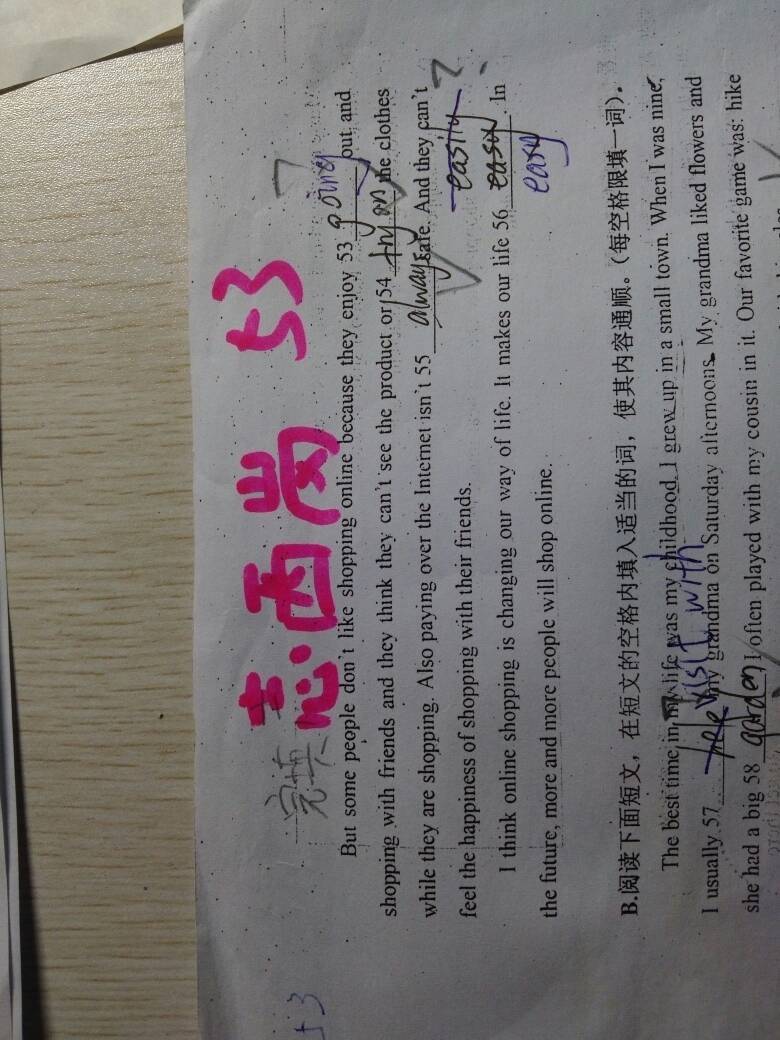 完填
志西岗 53
But some people don't like shopping online because they enjoy 53 going out and
shopping with friends and they think they can't see the product or 54 try on the clothes
while they are shopping. Also paying over the Internet isn't 55 always safe. And they can't
feel the happiness of shopping with their friends. easily
I think online shopping is changing our way of life. It makes our life 56 easily. In
easy
the future, more and more people will shop online.
B.阅读下面短文，在短文的空格内填入适当的词，使其内容通顺。（每空格限填一词）.
The best time in my life was my childhood. I grew up in a small town. When I was nine,
visit with
I usually 57 my grandma on Saturday afternoons. My grandma liked flowers and
she had a big 58 garden, I often played with my cousin in it. Our favorite game was: hike
+3